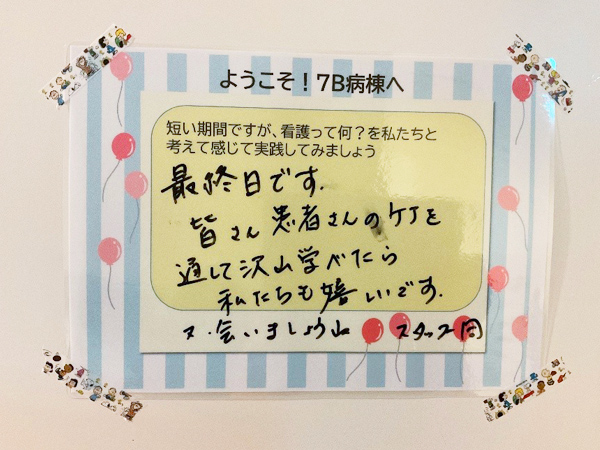 ようこそ！7B病棟へ
短い期間ですが、看護って何？を私たちと
考えて感じて実践してみましょう
最終日です.
皆さん 患者さんのケアを
通して沢山学べたら
私たちも嬉しいです.
又.会いましょう
スタッフ一同